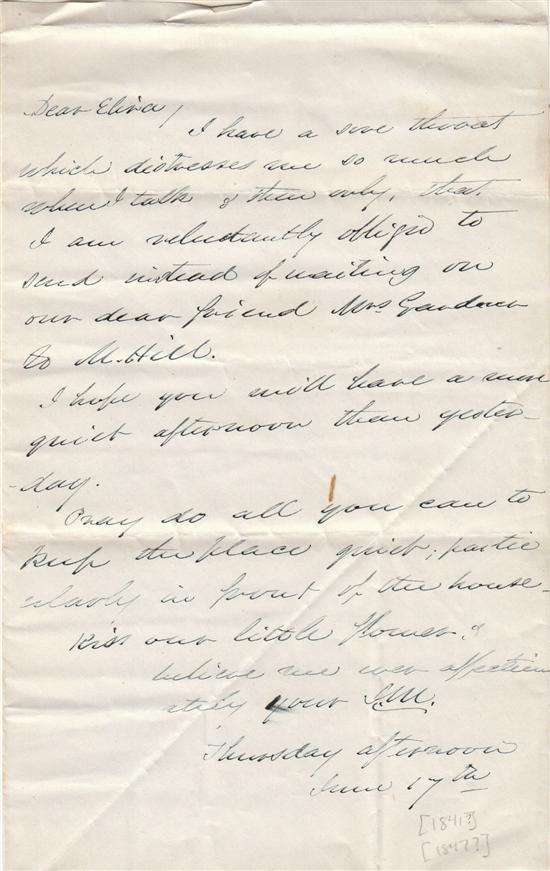 Dear Eliza,
I have a sore throat
which distresses me so much
when I talk & then only, that
I am reluctantly obliged to
send instead of waiting on
our dear friend Mrs Gardner
to M. Hill.
I hope you will have a more
quiet afternoon than yester-
-day.
Pray do all you can to
keep the place quiet; partic
ularly in front of the house-
Kiss our little flower, &
believe me ever affection
ately your
Thursday afternoon
June 17th
[1841?]
[1847?]